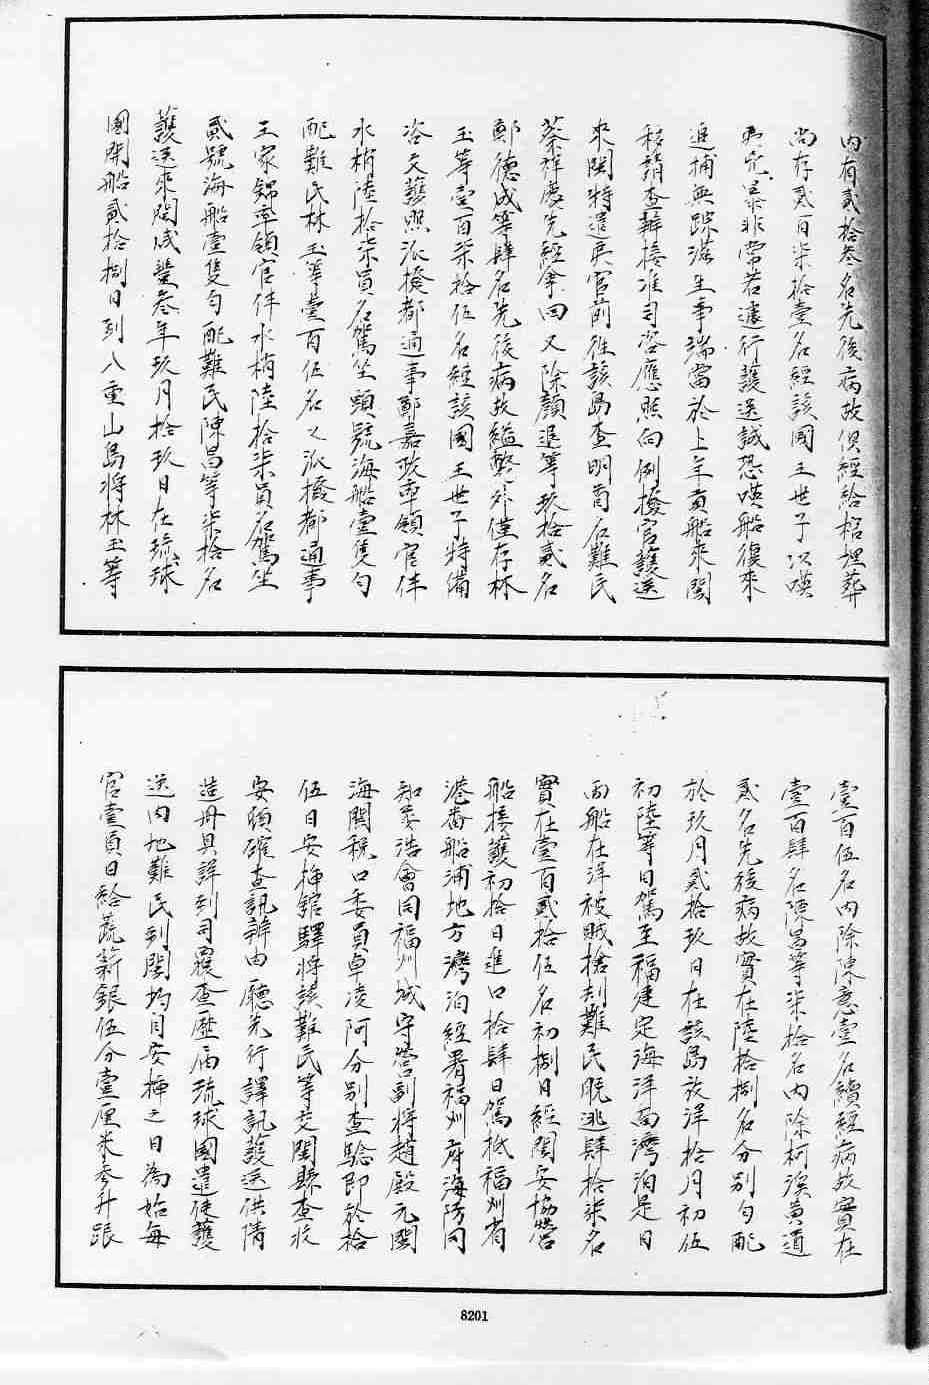 內有貳拾叁名先後病故俱經給棺埋葬
尚存貳百柒拾壹名經該國王世子以暎
夷兇暴非常若遽行護送誠恐暎船復來
追捕無踪滋生事端當於上年貢船來閩
移請查辦接准司咨應照向例撥官護送
來閩特遣夷官前往該島查明前名難民
蔡祥慶先經拿回又除顏退等玖拾貳名
鄭德成等肆名先後病故縊斃外僅存林
玉等壹百柒拾伍名經該國王世子特備
咨文護照派撥都通事鄭嘉政率領官伴
水梢陸拾柒員名駕坐頭號海船壹隻勻
配難民林玉等壹百伍名又派撥都通事
王家錦率領官伴水梢陸拾柒員名駕坐
貳號海船壹隻勻配難民陳昌等柒拾名
護送來閩咸豐叁年玖月拾玖日在琉球
國開船貳拾捌日到八重山島將林玉等
壹百伍名內除陳意壹名續經病故實在
壹百肆名陳昌等柒拾名內除柯溪黃道
貳名先後病故實在陸拾捌名分別勻配
於玖月貳拾玖日在該島放洋拾月初伍
初陸等日駕至福建定海洋面灣泊是日
兩船在洋被賊搶刦難民脫逃肆拾柒名
實在壹百貳拾伍名初捌日經閩安協營
船接護初拾日進口拾肆日駕抵福州省
港番船浦地方灣泊經署福州府海防同
知 浩會同福州城守營副將趙殿元閩
海關稅口委員卓凌阿分別查驗即於拾
伍日安插館驛將該難民等交閩縣查收
安頓確查訊辦由廳先行譯訊護送供情
造册具詳到司覆查歷屆琉球國遣使護
送內地難民到閩均自安插之日為始每
官壹員日給蔬薪銀伍分壹厘米叁升跟
8201